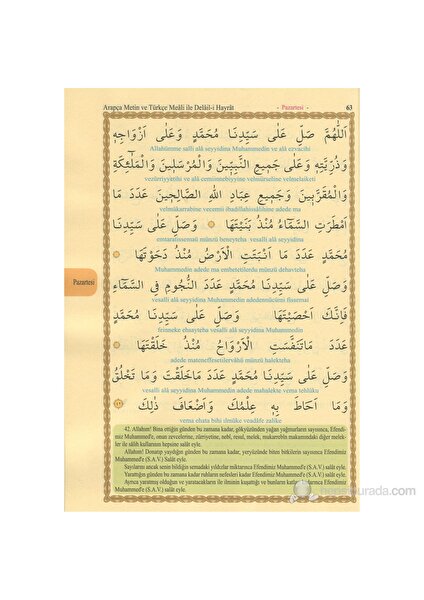 Arapça Metin ve Türkçe Meâli ile Delâil-i Hayrât - Pazartesi - 63
اَللّٰهُمَّ صَلِّ عَلٰى سَيِّدِنَا مُحَمَّدٍ وَعَلٰى اَزْوَاجِهِ
Allahümme salli alâ seyyidina Muhammedin ve alâ ezvacihi
وَذُرِّيَّتِهِ وَعَلٰى جَمِيعِ النَّبِيِّينَ وَالْمُرْسَلِينَ وَالْمَلٰٓئِكَةِ
vezürriyyetihi ve alâ cemiinnebiyyine velmürseline velmelaiketi
وَالْمُقَرَّبِينَ وَجَمِيعِ عِبَادِ اللّٰهِ الصَّالِحِينَ عَدَدَ مَا
velmükarrabine vecemii ibadillahissâlihine adede ma
اَمْطَرَتِ السَّمَٓاءُ مُنْذُ بَنَيْتَهَا وَصَلِّ عَلٰى سَيِّدِنَا
emtaratissemaü münzü beneyteha vesalli alâ seyyidina
مُحَمَّدٍ عَدَدَ مَا اَنْبَتَتِ الْاَرْضُ مُنْذُ دَحَوْتَهَا
Muhammedin adede ma embetetilerdu münzü dehavteha
Pazartesi
وَصَلِّ عَلٰى سَيِّدِنَا مُحَمَّدٍ عَدَدَ النُّجُومِ فِي السَّمَٓاءِ
vesalli alâ seyyidina Muhammedin adedennücûmi fissemai
فَاِنَّكَ اَحْصَيْتَهَا وَصَلِّ عَلٰى سَيِّدِنَا مُحَمَّدٍ
feinneke ehsayteha vesalli alâ seyyidina Muhammedin
عَدَدَ مَاتَنَفَّسَتِ الْاَرْوَاحُ مُنْذُ خَلَقْتَهَا
adede mateneffesetilervâhü münzü halekteha
وَصَلِّ عَلٰى سَيِّدِنَا مُحَمَّدٍ عَدَدَ مَاخَلَقْتَ وَمَا تَخْلُقُ
vesalli alâ seyyidina Muhammedin adede mahalekte vema tehlüku
وَمَا اَحَاطَ بِهِ عِلْمُكَ وَاَضْعَافَ ذٰلِكَ
vema ehata bihi ilmüke veadâfe zalike
42. Allahım! Bina ettiğin günden bu zamana kadar, gökyüzünden yağan yağmurların sayısınca, Efendi-
miz Muhammed'e, onun zevcelerine, zürriyetine, nebî, resul, melek, mukarrebîn makamındaki diğer melek-
ler ile sâlih kullarının hepsine salât eyle.
Allahım! Donatıp yaydığın günden bu zamana kadar, yeryüzünde biten bitkilerin sayısınca Efendimiz
Muhammed'e (S.A.V.) Salât eyle.
Sayılarını ancak senin bildiğin semadaki yıldızlar miktarınca Efendimiz Muhammed'e (S.A.V.) salât eyle.
Yarattığın günden bu zamana kadar ruhların nefesleri kadar Efendimiz Muhammed'e (S.A.V.) salât eyle.
Ayrıca yaratmış olduğun ve yaratacakların ile ilminin kuşattığı ve bunların katları adarınca Efendimiz
Muhammed'e (S.A.V.) salât eyle.
hepsiburada.com